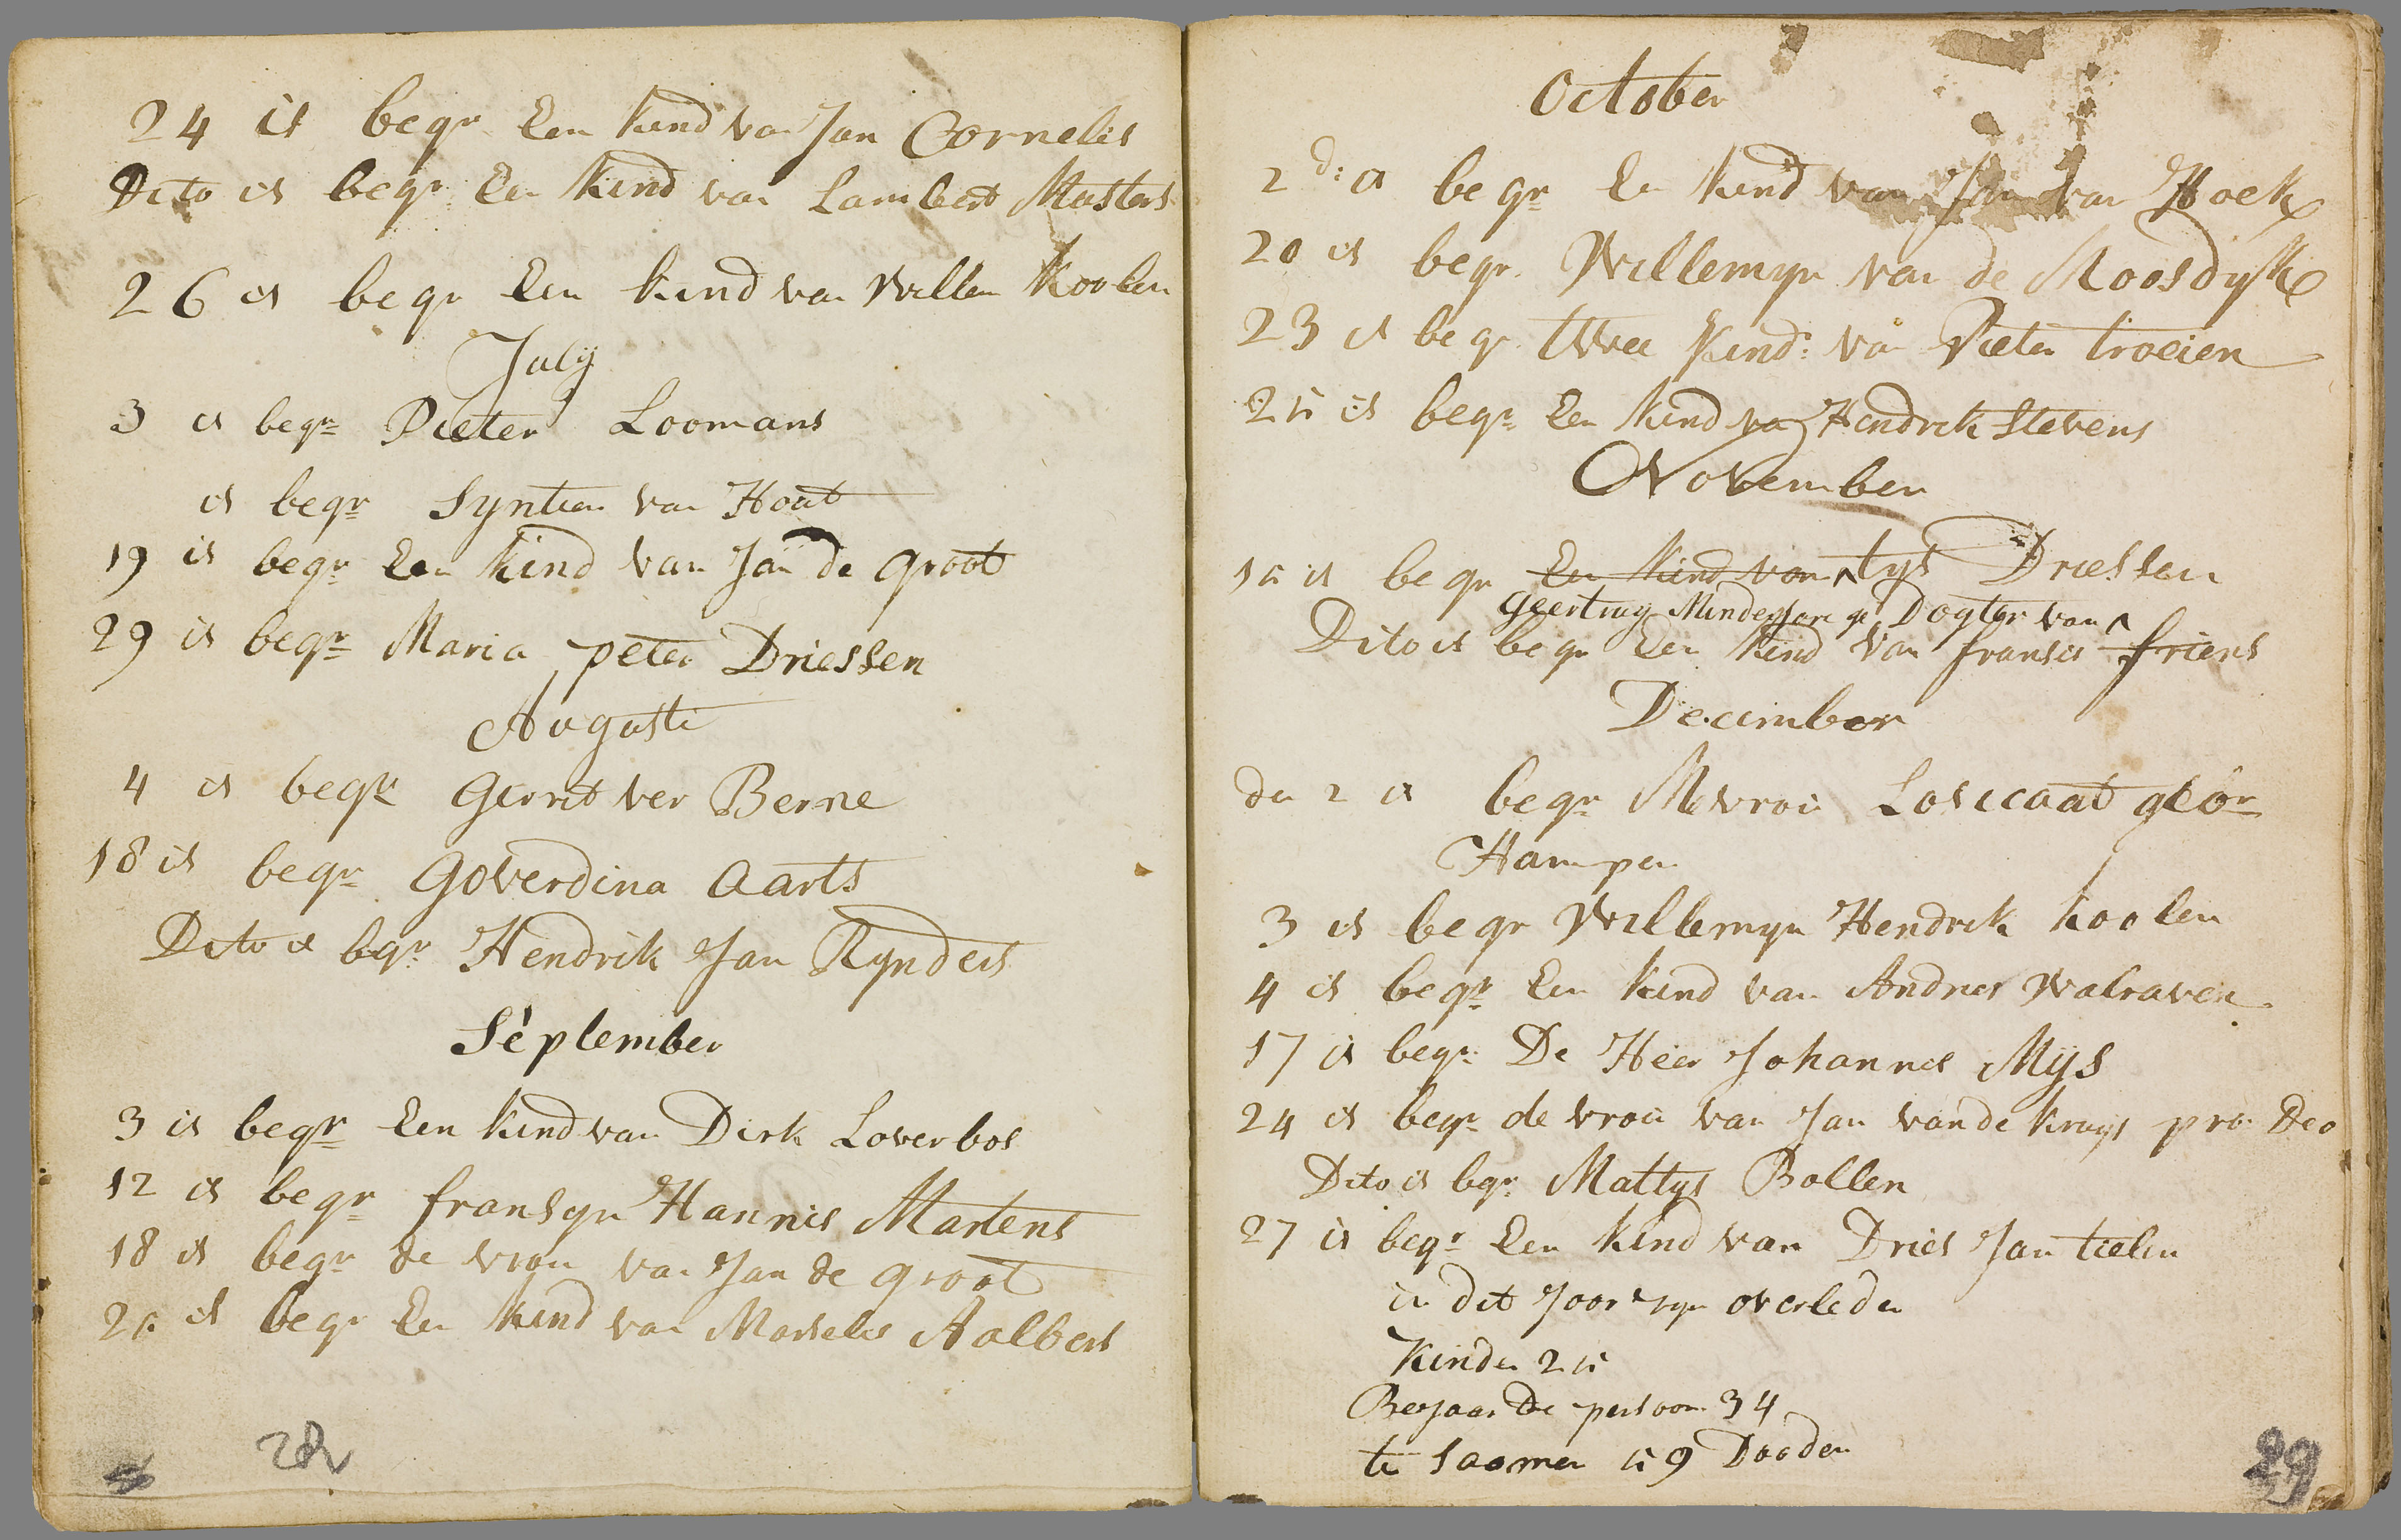 24 is begr Een kind van Jan Cornelis
Dito is begr Een kind van Lambert Musters
26 is begr Een kind van Willem Koolen
July
3 is begr Pieter Loomans
is begr Syntien van Hout
19 is begr Een kind van Jan de groot
29 is begr Maria peter Driessen
Augusti
4 is begr Gerrit ver Berne
18 is begr Goverdina Aarts
Dito is begr Hendrik Jan Rynders
September
3 is begr Een kind van Dirk Loverbos
12 is begr fransyn Hannis Martens
18 is begr de vrou van Jan de groot
25 is begr Een kind van Marselis Aalbers
28v
October
2d: is begr Een kind van Jan van Hoek
20 is begr Willemyn van de Moosdyk
23 is begr twee kind: van Pieter troeien
25 is begr Een kind van Hendrik Stevens
November
15 is begr Een kind van tys Driessen
Geertruy Minderjarige Dogter van
Dito is begr Een kind van fransis friens
December
den 2 is begr Mevrou Losecaat gebor
Hamper
3 is begr Willemyn Hendrik koolen
4 is begr Een kind van Andries Walraven
17 is begr De Heer Johannes Mys
24 is begr de vrou van Jan van de kruys pro Deo
Dito is begr Mattys Bollen
27 is begr Een kind van Dries Jan tielen
in dit Joor syn overleden
Kinder 25
Bejaarde persoon 34
te saamen 59 Dooden
29